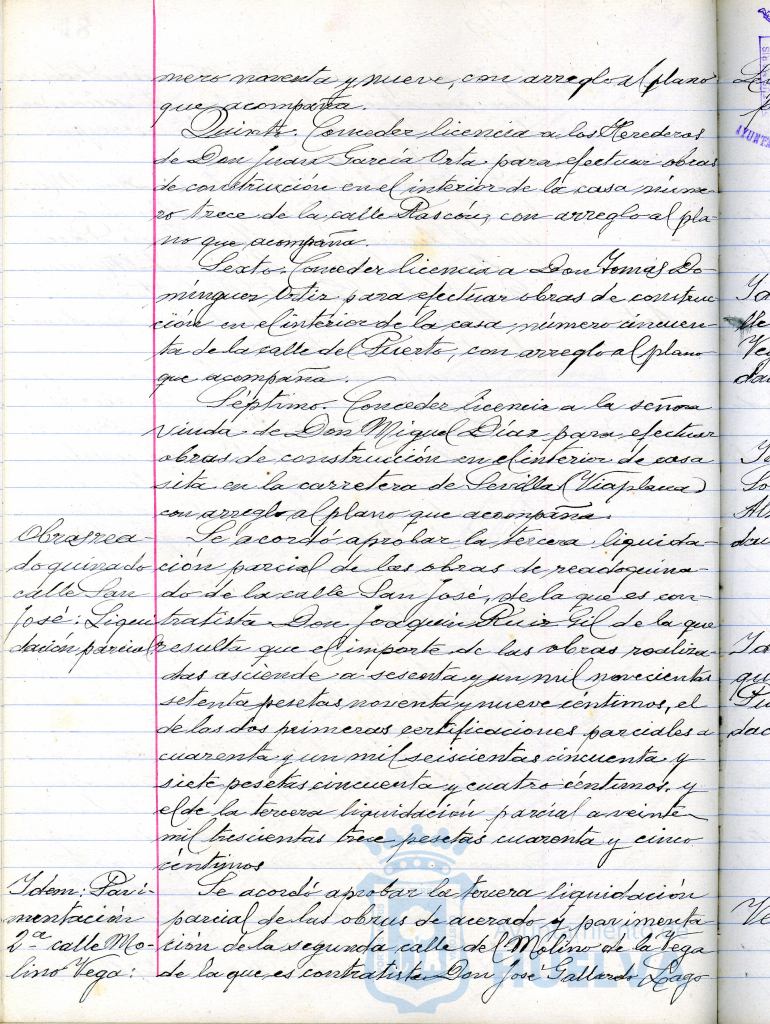 mero noventa y nueve, con arreglo al plano
que acompaña.
Quinto. Conceder licencia a los Herederos
de Don Juan García Orta para efectuar obras
de construcción en el interior de la casa núme-
ro trece de la calle Rascón, con arreglo al pla-
no que acompaña.
Sexto. Conceder licencia a Don Tomás Do-
minguez Ortiz para efectuar obras de construc
ción en el interior de la casa, número cincuen-
ta de la calle del Puerto, con arreglo al plano
que acompaña.
Séptimo. Conceder licencia a la señora
viuda de Don Miguel Díaz para efectuar
obras de construcción en el interior de casa
sita en la carretera de Sevilla (Viaplana)
con arreglo al plano que acompaña.
Obras rea-
doquinado
calle San
José: Liqui
dación parcial
Se acordó aprobar la tercera liquida-
ción parcial de las obras de readoquina-
do de la calle San José, de la que es con-
tratista Don Joaquín Ruiz Gil de la que
resulta que el importe de las obras realiza-
das asciende a sesenta y un mil novecientas
setenta pesetas noventa y nueve céntimos, el
de las dos primeras certificaciones parciales a
cuarenta y un mil seiscientas cincuenta y
siete pesetas cincuenta y cuatro céntimos, y
el de la tercera liquidación parcial a veinte
mil trescientas trece pesetas cuarenta y cinco
centimos
Idem: Pavi-
mentación
2ª calle Mo-
lino Vega:
Se acordó aprobar la tercera liquidación
parcial de las obras de acerado y pavimenta
ción de la segunda calle del Molino de la Vega
de la que es contratista Don José Gallardo Lago
Ayuntamiento de
HUELVA